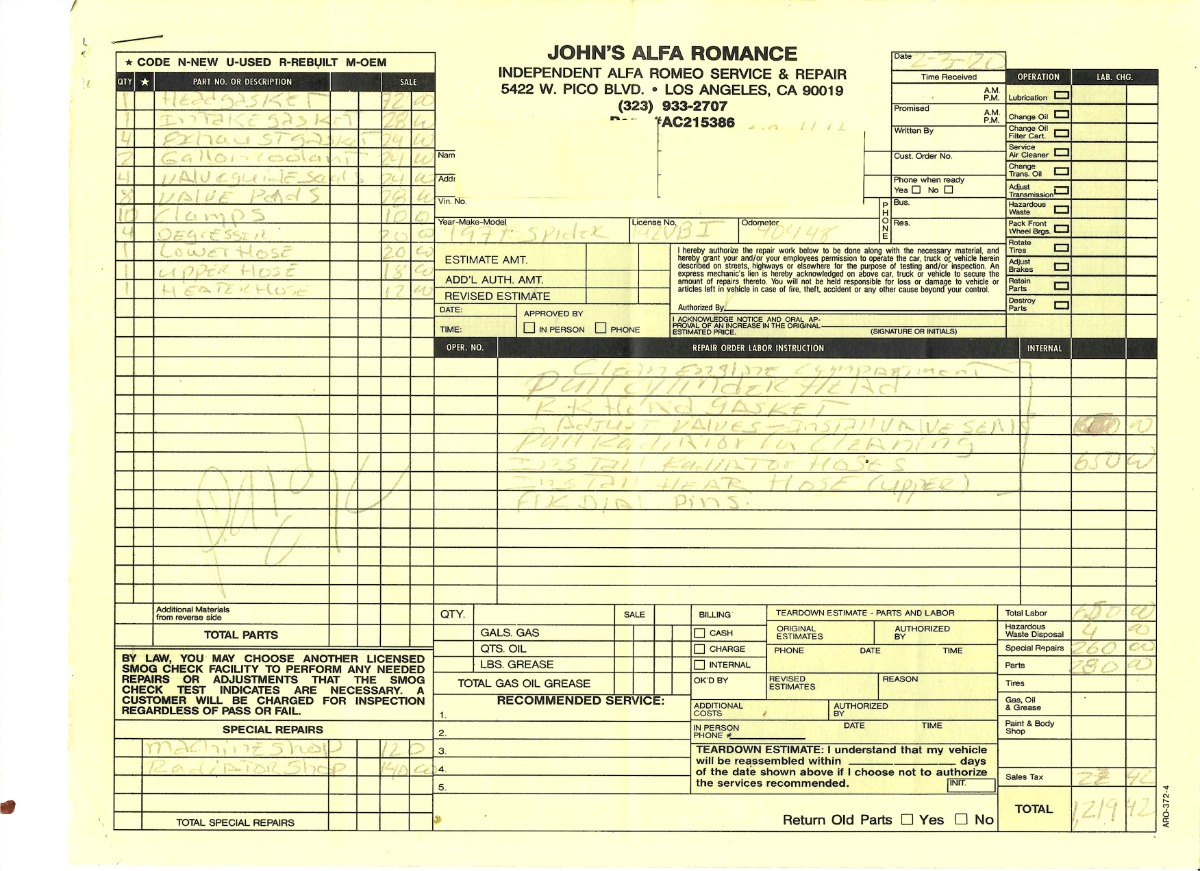 ★ CODE N-NEW U-USED R-REBUILT M-OEM
QTY ★ PART NO. OR DESCRIPTION SALE
1 Headgasket 72 00
1 Intake gasket 28 00
4 Exhaust gasket 24 00
2 Gallon coolant 24 00
4 Valve guide seals 24 00
8 VALVE Pads 28 00
10 Clamps 10 0
4 DEGRESSER 20 00
1 LOWER HOSE 20 00
1 UPPER HOSE 18 00
1 HEATER HOSE 12 00
Paid
Additional Materials
from reverse side
TOTAL PARTS
BY LAW, YOU MAY CHOOSE ANOTHER LICENSED
SMOG CHECK FACILITY TO PERFORM ANY NEEDED
REPAIRS OR ADJUSTMENTS THAT THE SMOG
CHECK TEST INDICATES ARE NECESSARY. A
CUSTOMER WILL BE CHARGED FOR INSPECTION
REGARDLESS OF PASS OR FAIL.
SPECIAL REPAIRS
Machine Shop 120
Radiator Shop 140 00
TOTAL SPECIAL REPAIRS
JOHN'S ALFA ROMANCE
INDEPENDENT ALFA ROMEO SERVICE & REPAIR
5422 W. PICO BLVD. • LOS ANGELES, CA 90019
(323) 933-2707
#AC215386
Nam
Addr
Vin. No.
Year-Make-Model License No. Odometer
1977 Spider
ESTIMATE AMT.
ADD'L AUTH. AMT.
REVISED ESTIMATE
DATE:
TIME:
APPROVED BY
IN PERSON PHONE
I hereby authorize the repair work below to be done along with the necessary material, and
hereby grant your and/or your employees permission to operate the car, truck or vehicle herein
described on streets, highways or elsewhere for the purpose of testing and/or inspection. An
express mechanic's lien is hereby acknowledged on above car, truck or vehicle to secure the
amount of repairs thereto. You will not be held responsible for loss or damage to vehicle or
articles left in vehicle in case of fire, theft, accident or any other cause beyond your control.
Authorized By
I ACKNOWLEDGE NOTICE AND ORAL AP-
PROVAL OF AN INCREASE IN THE ORIGINAL
ESTIMATED PRICE. (SIGNATURE OR INITIALS)
Date
Time Received
A.M.
P.M.
Promised
A.M.
P.M.
Written By
Cust. Order No.
Phone when ready
Yes No
PHONE
Bus.
Res.
OPERATION LAB. CHG.
Lubrication
Change Oil
Change Oil
Filter Cart.
Service
Air Cleaner
Change
Trans. Oil
Adjust
Transmission
Hazardous
Waste
Pack Front
Wheel Brgs.
Rotate
Tires
Adjust
Brakes
Retain
Parts
Destroy
Parts
OPER. NO. REPAIR ORDER LABOR INSTRUCTION INTERNAL
Clean Engine Compartment
Pull Cylinder Head
R R Head GASKET
ADJUST VALVES - Install VALVE SEALS
Pull Radiator for Cleaning
Install Radiator HOSES 650 00
Install HEAR HOSE (upper)
FIX DIAL Pins.
QTY. SALE
GALS. GAS
QTS. OIL
LBS. GREASE
TOTAL GAS OIL GREASE
RECOMMENDED SERVICE:
1.
2.
3.
4.
5.
BILLING
CASH
CHARGE
INTERNAL
OK'D BY
ADDITIONAL
COSTS
IN PERSON
PHONE #
TEARDOWN ESTIMATE - PARTS AND LABOR
ORIGINAL
ESTIMATES
AUTHORIZED
BY
PHONE DATE TIME
REVISED
ESTIMATES
REASON
AUTHORIZED
BY
DATE TIME
TEARDOWN ESTIMATE: I understand that my vehicle
will be reassembled within ______ days
of the date shown above if I choose not to authorize
the services recommended.
INIT.
Return Old Parts Yes No
Total Labor 650 00
Hazardous
Waste Disposal 4 00
Special Repairs 260 00
Parts 280 00
Tires
Gas, Oil
& Grease
Paint & Body
Shop
Sales Tax 42
TOTAL 1,219 42
ARO-372-4